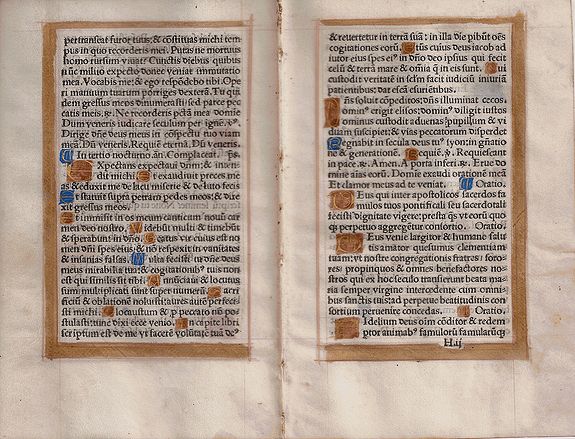 pertranseat furor tuus; & cōstituas michi tem
pus in quo recorderis mei. Putas ne mortuus
homo rursum viuat? Cunctis diebus quibus
nūc milito expecto donec veniat immutatio
mea. Vocabis me; & ego respōdebo tibi. Ope
ri manuum tuarum porriges dexterā. Tu qui
dem gressus meos dinumerasti; sed parce pec
catis meis. Ne recorderis pctā mea domie
Dum veneris iudicare seculum per ignē.
Dirige dñe deus meus in cōspectu tuo viam
meā. Dū veneris. Requiē eternā. Dū veneris.
In tertio nocturno. añ. Complaceat. ps.
Expectans expectaui dnm; & inten
dit michi. Et exaudiuit preces me
as & eduxit me de lacu miserie & de luto fecis
Et statuit supra petram pedes meos; & dire
xit gressus meos.
Et immisit in os meum canticum nouū car
men deo nostro. Videbūt multi & timebūt
& sperabunt in dño. Beatus vir cuius est no
men dñi spes eius; & nō respexit in vanitates
& insanias falsas. Multa fecisti tu dñe deus
meus mirabilia tua; & cogitationib9 tuis non
est qui similis sit tibi. Annūciaui & locutus
sum multiplicati sunt super numerū. Sacri
ficiū & oblationē noluisti; aures autē perfeci
sti michi. Holocaustum & p peccato nō pos
tulasti; tunc dixi ecce venio. In capite libri
scriptum est de me vt facerē volūtatē tuā de9
& reuertetur in terrā suā: in illa die pibūt oēs
cogitationes eorū. Beatus cuius deus iacob ad
iutor eius spes ei9 in dño deo ipsius qui fecit
celū & terrā mare & omnia q̄ in eis sunt. Qui
custodit veritatē in sclm facit iudiciū iniuriā
patientibus; dat escā esurientibus.
Dñs soluit cōpeditos; dñs illuminat cecos.
Domin9 erigit elisos; domin9 diligit iustos
Dominus custodit aduenas; pupillum & vi
duam suscipiet; & vias peccatorum disperdet
Regnabit in secula deus tu9 syon; in gñatio
nē & generationē. Requiē. Requiescant
in pace. Amen. A porta inferi. Erue do
mine aias eorū. Domie exaudi orationē meā
Et clamor meus ad te veniat. Oratio.
Deus qui inter apostolicos sacerdos fa
mulos tuos pontificali seu sacerdotali
fecisti dignitate vigere; presta qs vt eorū quo
q; perpetuo aggregētur consortio. Oratio.
Deus venie largitor & humane salu
tis amator quesumus clementiam
tuam; vt nostre congregationis fratres; soro
res; propinquos & omnes benefactores no
stros qui ex hoc seculo transierunt beata ma
ria semper virgine intercedente cum omni
bus sanctis tuis; ad perpetue beatitudinis con
sortium peruenire concedas. Oratio.
Fidelium deus oīm cōditor & redem
ptor animab9 famulorū famularūq;
H.ij